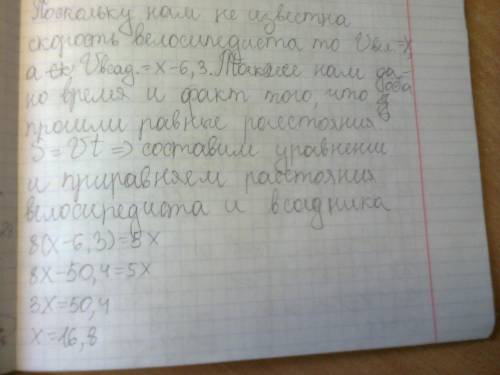 Поскольку нам не известна
скорость велосипедиста то Vвел=x,
а Vвсад.=x-6,3. Также нам да-
но время и факт того, что оба
прошли равные расстояния
S=Vt => составим уравнение
и приравняем расстояния
велосипедиста и всадника
8(x-6,3)=5x
8x-50,4=5x
3x=50,4
x=16,8